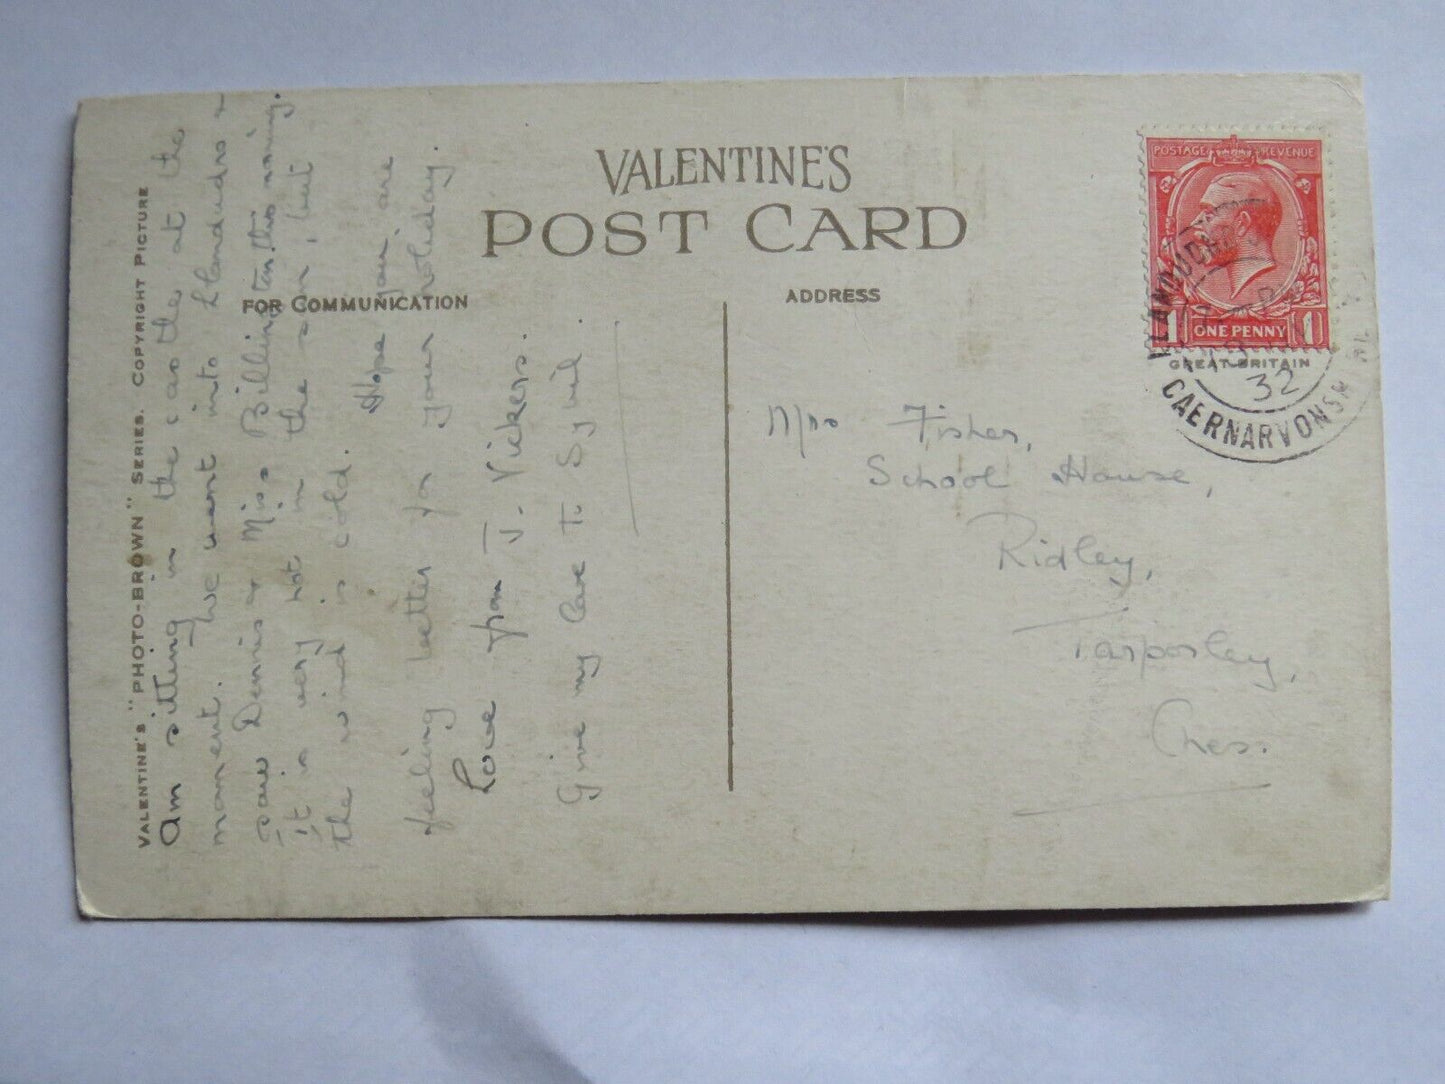 VALENTINE'S
POST CARD
FOR COMMUNICATION
ADDRESS
VALENTINE'S "PHOTO-BROWN" SERIES. COPYRIGHT PICTURE
Am sitting in the castle at the
moment. We went into Llandudno &
saw Dennis & Miss Billington this morning.
it is very hot in the sun, but
the wind is cold. Hope you are
feeling better for your holiday.
Love from J. Vickers.
Give my love to Sybil.
Mrs Fisher,
School House,
Ridley,
Tarporley,
Ches.
POSTAGE REVENUE
1 ONE PENNY 1
GREAT BRITAIN
LLANDUDNO
32
CAERNARVONSH